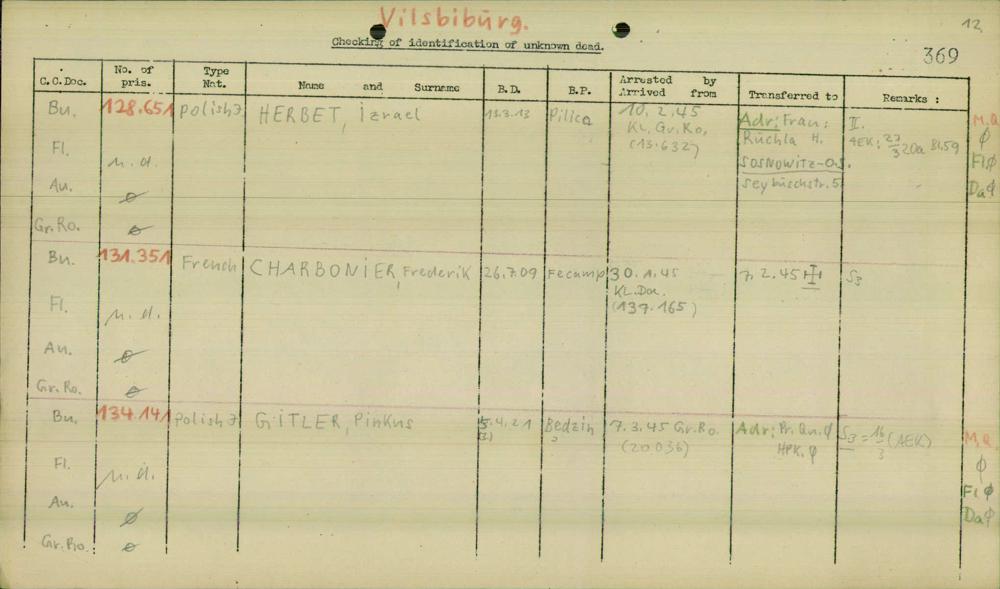 Vilsbibürg.
12
Checking of identification of unknown dead.
369
C.C.Doc. No. of pris. Type Nat. Name and Surname B.D. B.P. Arrested by Arrived from Transferred to Remarks :
Bu. 128.651 polish J HERBET, izrael 13.3.13 Pilica 10.2.45 Adr: Frau: II. M.Q
KL. Gr. Ro. Rüchla H. AEK: 27/3 20a Bl.59 ϕ
Fl. n.d. (13.632) SOSNOWITZ-O.S. Fl ϕ
Au. ø Seybüschstr. 5 Da ϕ
Gr.Ro. ø
Bu. 131.351 French CHARBONIER, Frederik 26.7.09 Fecamp 30.1.45 7.2.45 S3
KL.Dac.
Fl. n.d. (139.165)
Au. ø
Gr.Ro. ø
Bu. 134.141 polish J GITLER, Pinkus 5.4.21 Bedzin 7.3.45 Gr.Ro. Adr: Pr. Qu. ϕ S3 = 16/3 (AEK) M.Q.
(20036) HPK. ϕ ϕ
Fl. n.d. Fl ϕ
Au. ø Da ϕ
Gr.Ro. ø